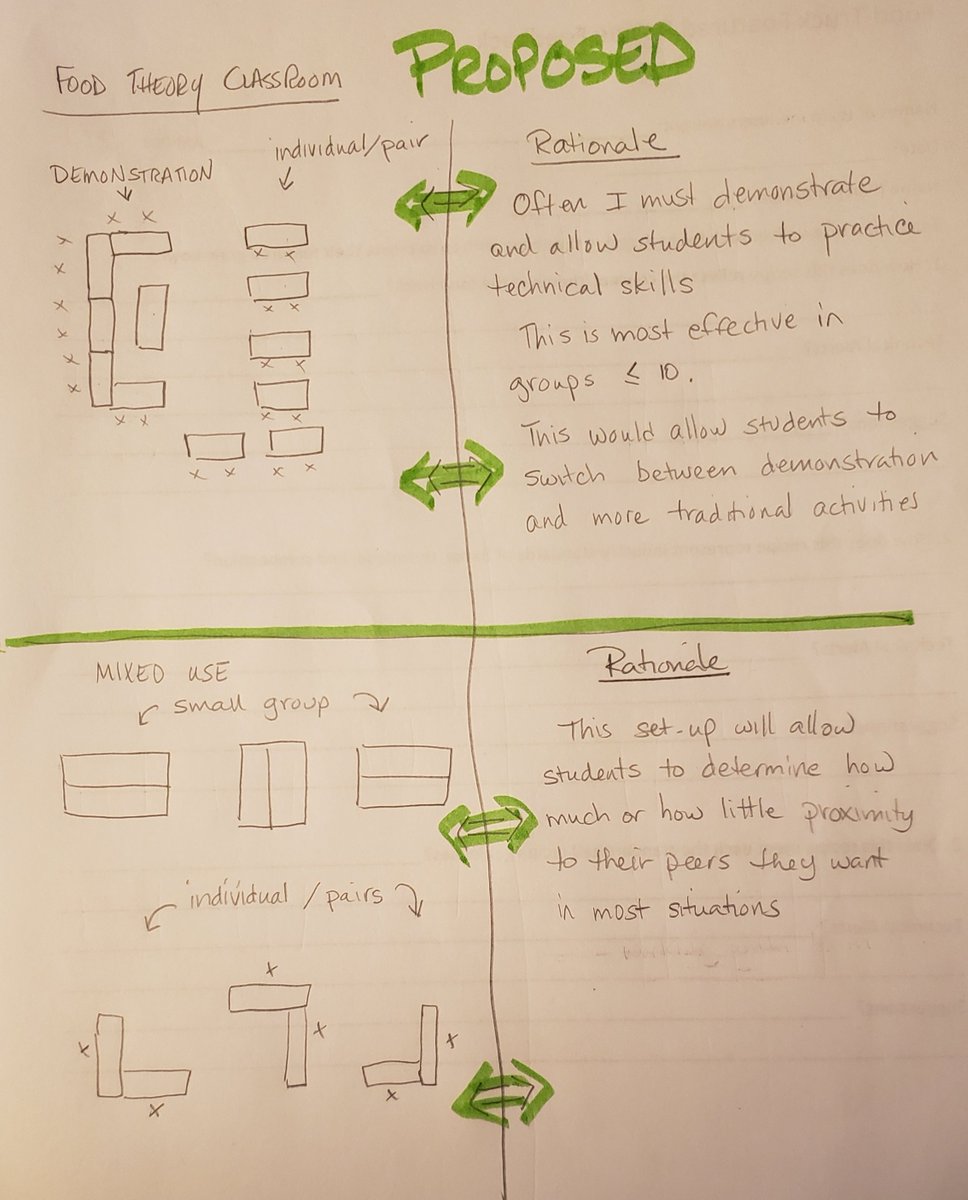 PROPOSED
FOOD THEORY CLASSROOM
DEMONSTRATION
individual/pair
x x
x
x
x
x
x
x
x x
x x
x x
x x
x x
x x x x
Rationale
Often I must demonstrate
and allow students to practice
technical skills
This is most effective in
groups ≤ 10.
This would allow students to
switch between demonstration
and more traditional activities
MIXED USE
small group
individual / pairs
x
x
x
x
x
x
Rationale
This set-up will allow
students to determine how
much or how little proximity
to their peers they want
in most situations